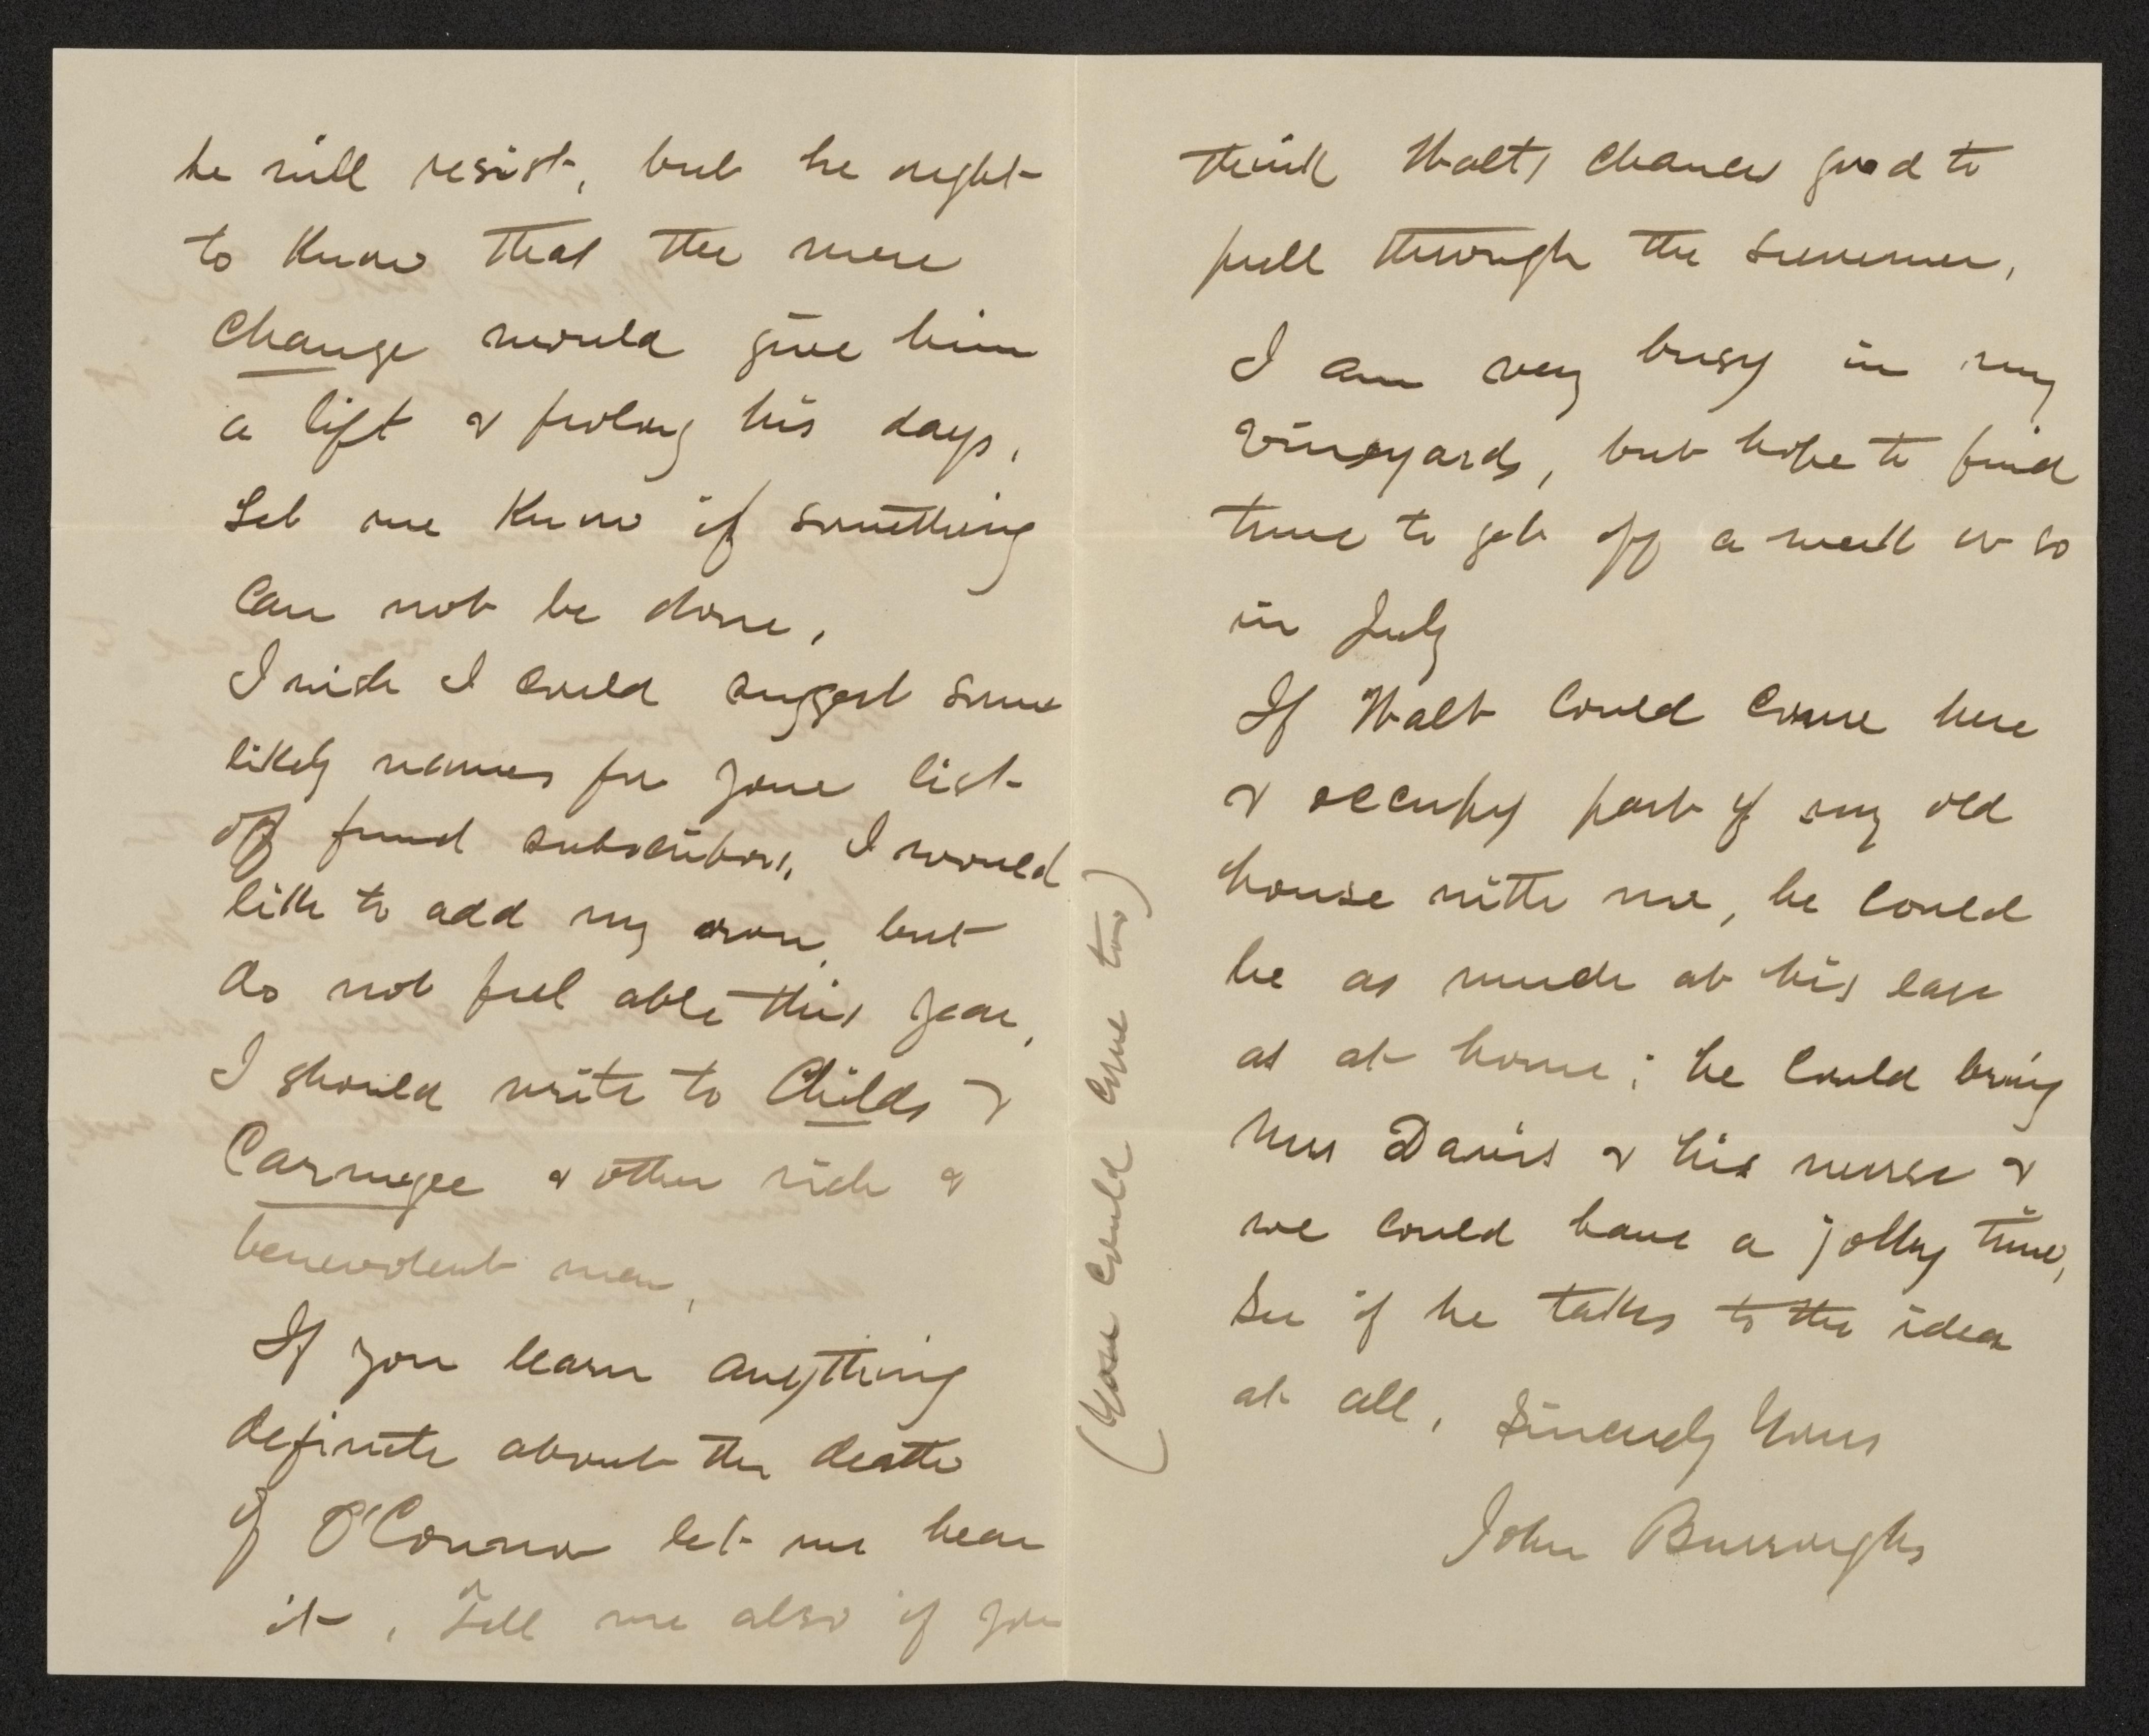 he will resist, but he ought
to know that the mere
change would give him
a lift & prolong his days.
Let me know if something
can not be done.
I wish I could suggest some
likely names for your list
of fund subscribers, I would
like to add my own, but
do not feel able this year.
I should write to Childs &
Carnegee & other rich &
benevolent men.
If you learn anything
definite about the death
of O'Connor let me hear
it. Tell me also if you
think Walts chances good to
pull through the summer.
I am very busy in my
vineyards, but hope to find
time to get off a week or so
in July
If Walt could come here
& occupy part of my old
house with me, he could
be as much at his ease
as at home; he could bring
Mrs Davis & his nurse &
we could have a jolly time,
See if he takes to the idea
at all. Sincerely Yours
John Burroughs
(You could come too)